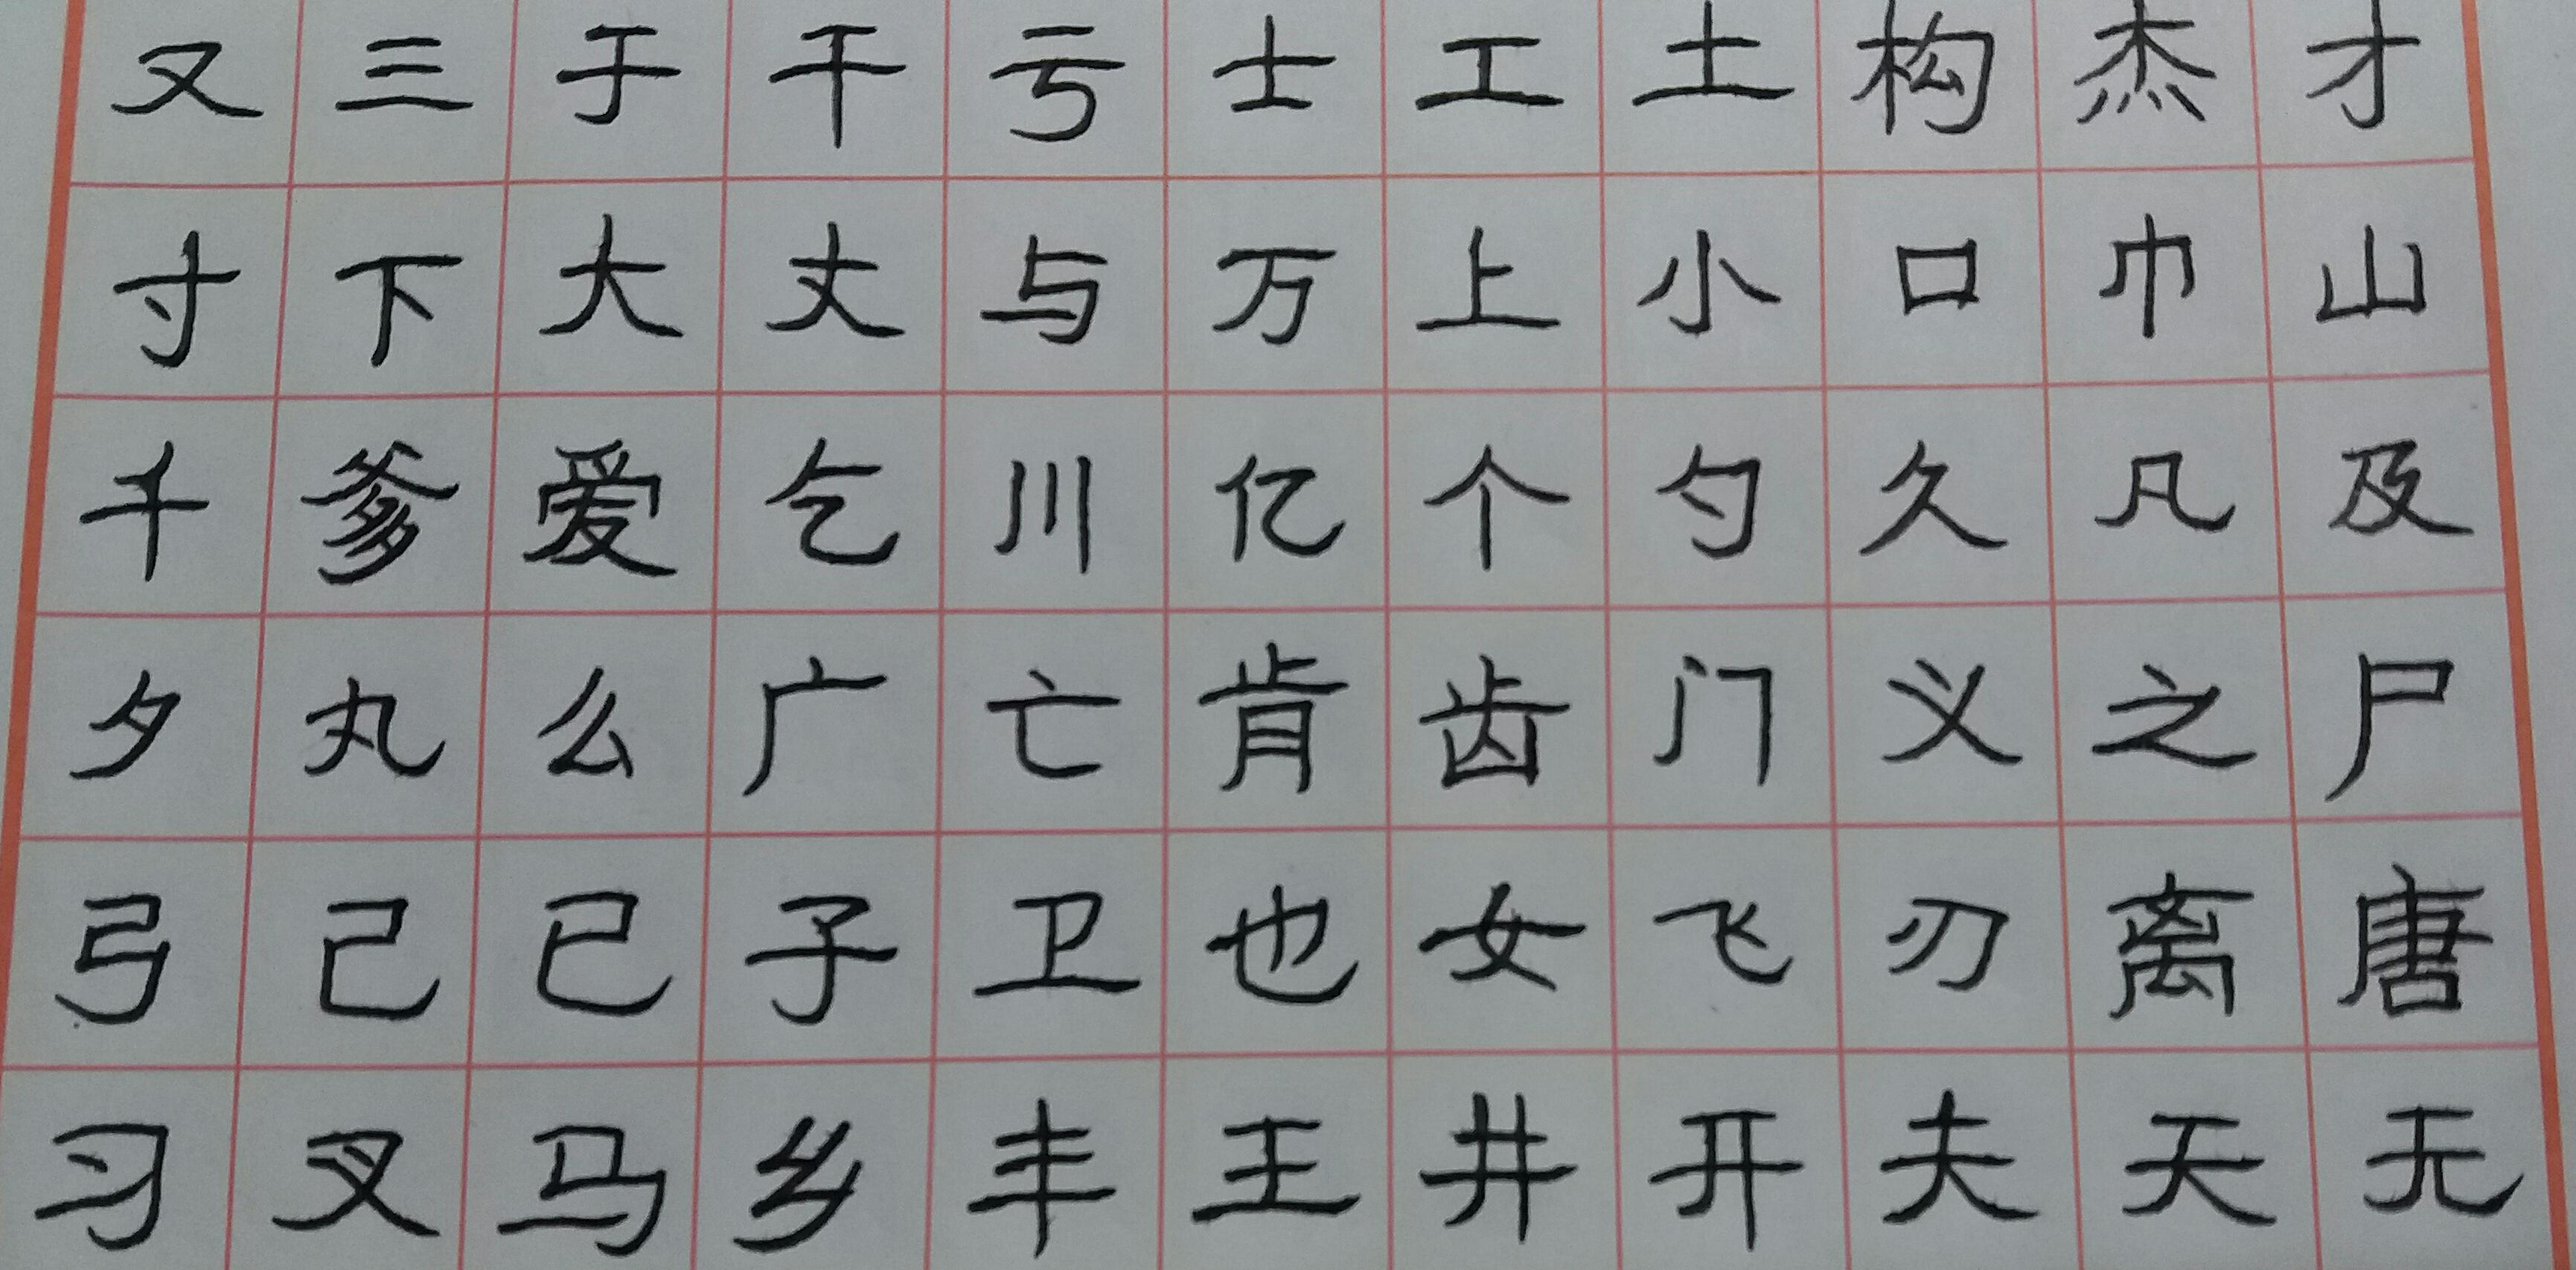 又三于干亏士工土构杰才
寸下大丈与万上小口巾山
千爹爱乞川亿个勺久凡及
夕丸么广亡肯齿门义之尸
弓己已子卫也女飞刃离唐
习叉马乡丰王井开夫天无